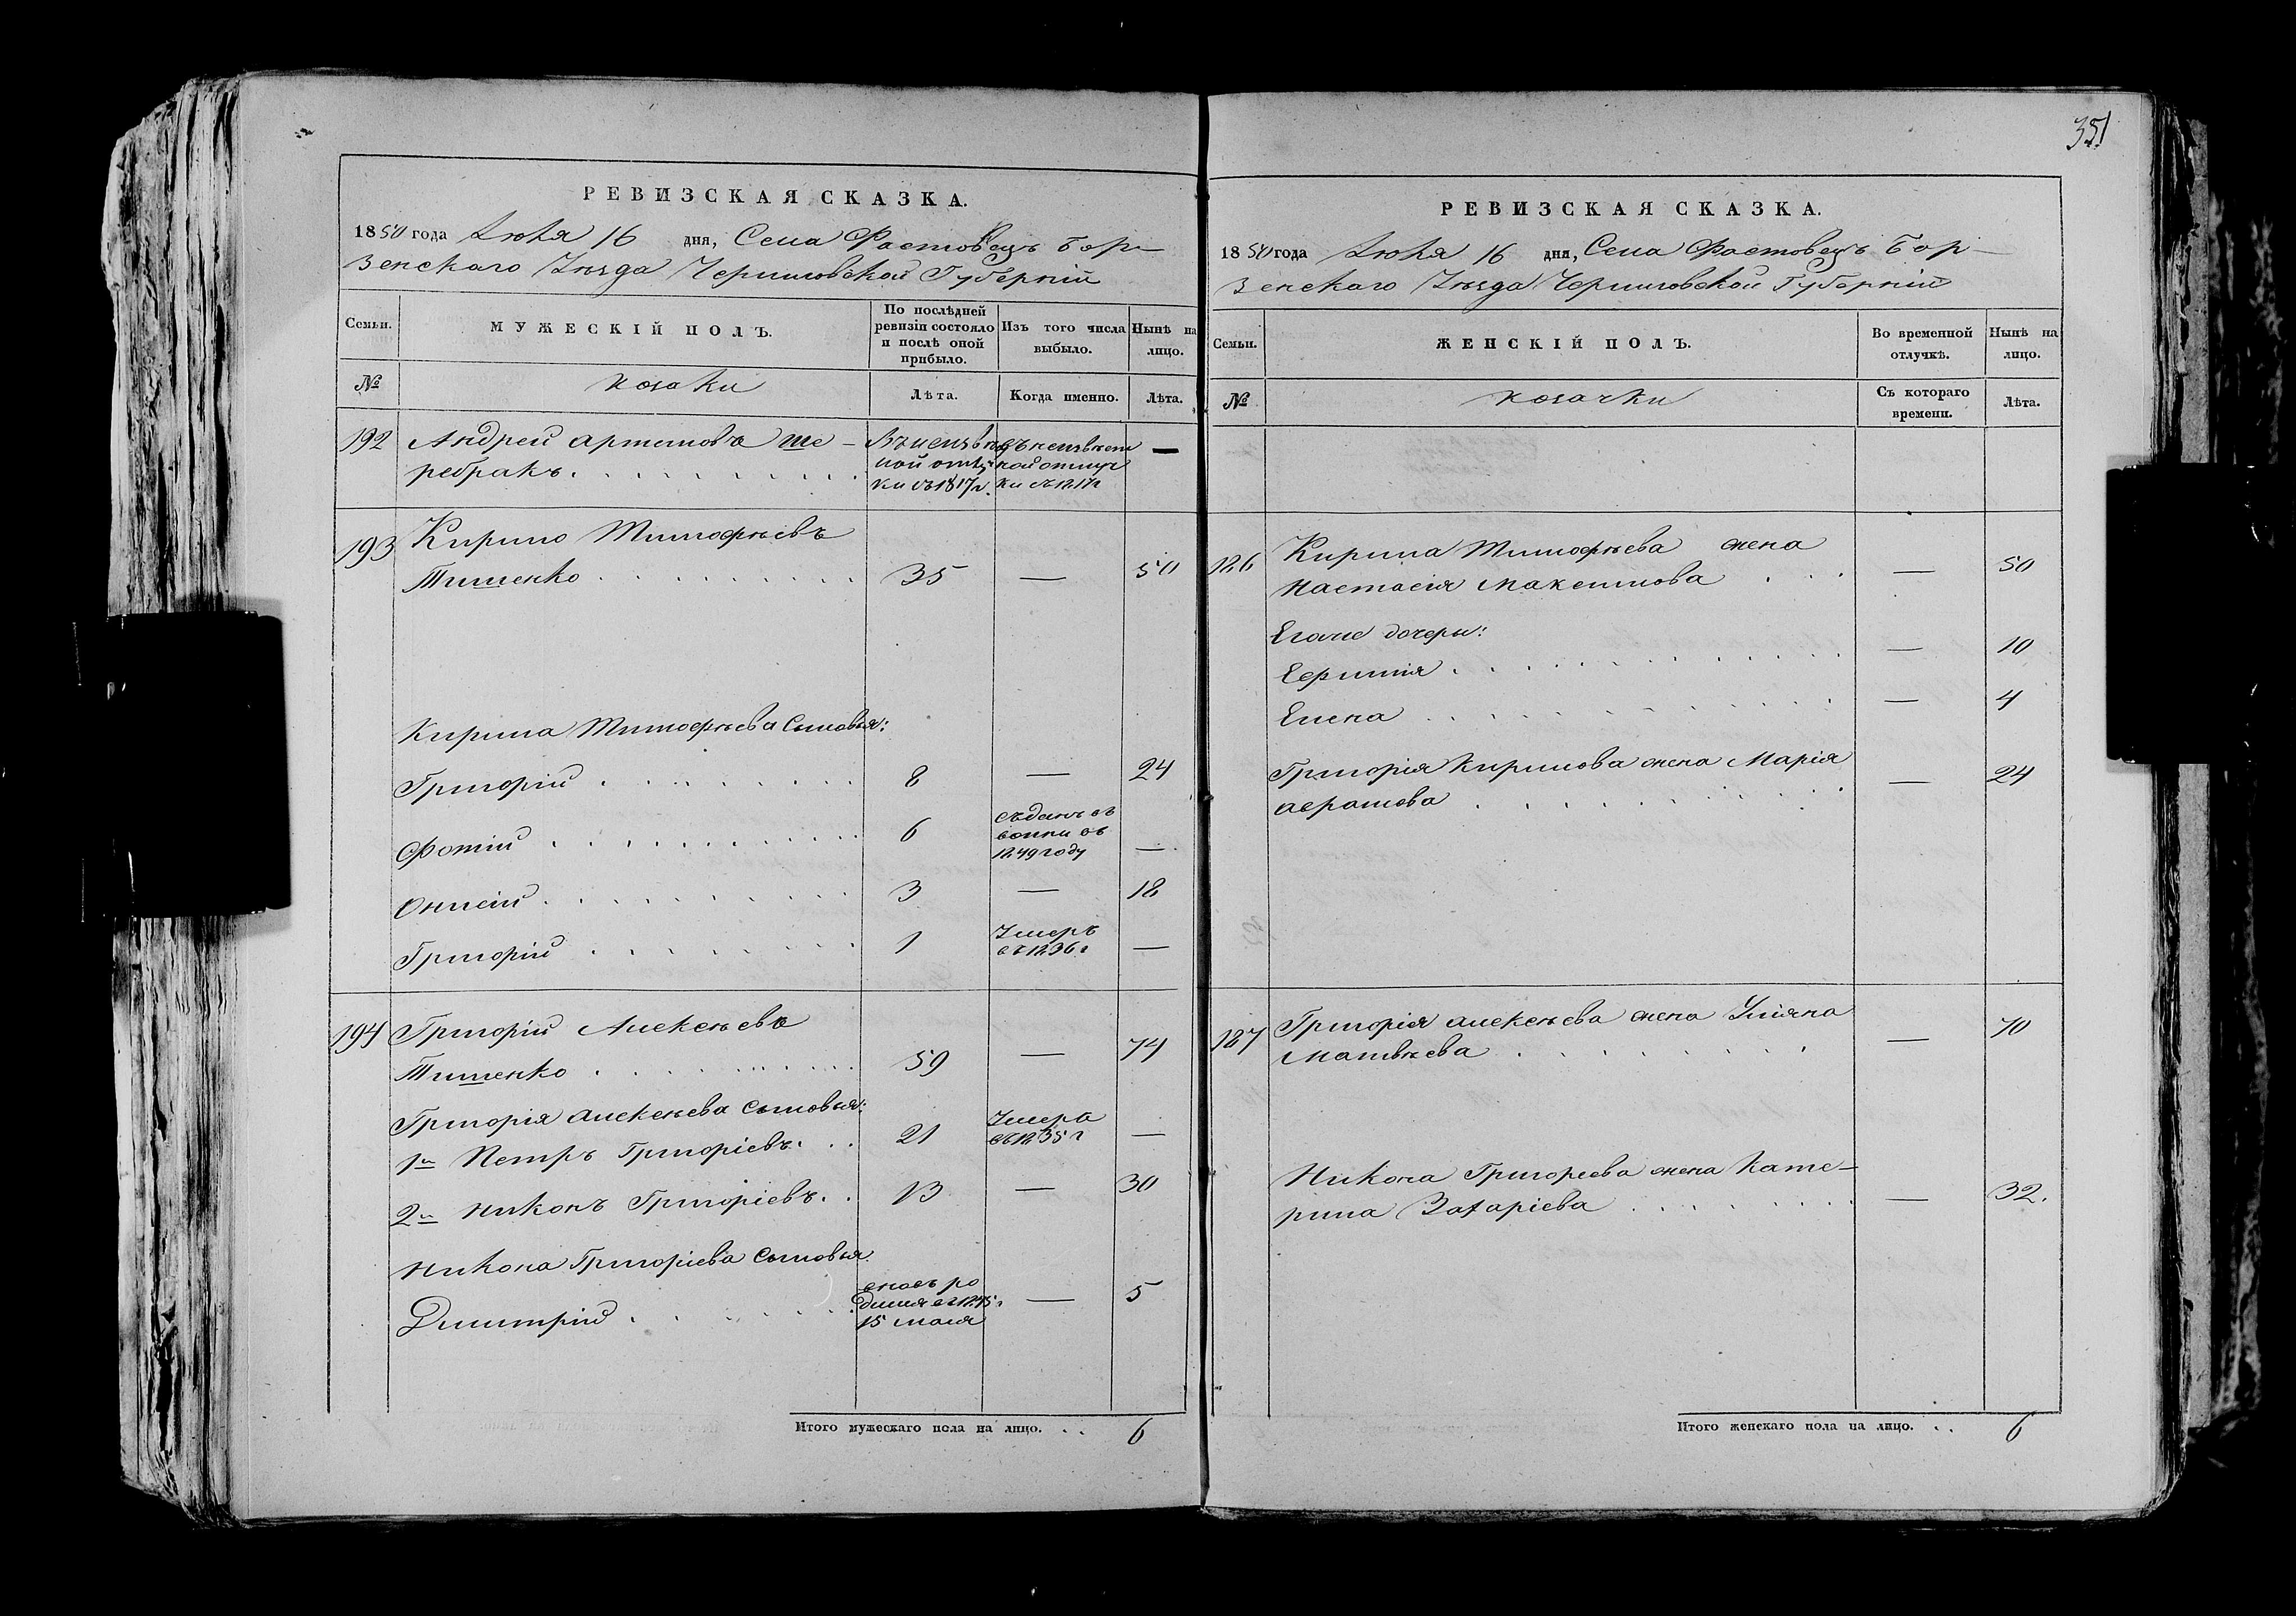 351
РЕВИЗСКАЯ СКАЗКА.
1850 года Июля 16 дня, Села Фастовецъ Бор-
зенскаго Уѣзда Черниговской Губерніи
Семьи.
МУЖЕСКІЙ ПОЛЪ.
По послѣдней ревизіи состояло и послѣ оной прибыло.
Изъ того числа выбыло.
Нынѣ на лицо.
№
козаки
Лѣта.
Когда именно.
Лѣта.
192 Андрей Артемовъ Ше- —
ребракъ
ки съ 1817г.
193 Кирило Тимофѣевъ
Тишенко 35 — 50
Кирила Тимофѣева сыновья:
Григорій 8 — 24
Фотій 6 —
1849 году
Онисій 3 — 18
Григорій 1 Умеръ въ 1836г —
194 Григорій Алексѣевъ
Тишенко 59 — 74
Григорія Алексѣева сыновья:
1й Петръ Григоріевъ 21 Умеръ въ 1835г —
2й Никонъ Григоріевъ 13 — 30
Никона Григоріева сыновья
Дмитрій — 5
15 мая
Итого мужескаго пола на лицо. 6
РЕВИЗСКАЯ СКАЗКА.
1850 года Июля 16 дня, Села Фастовецъ Бор-
зенскаго Уѣзда Черниговской Губерніи
Семьи.
ЖЕНСКІЙ ПОЛЪ.
Во временной отлучкѣ.
Нынѣ на лицо.
№
козачки
Съ котораго времени.
Лѣта.
Кирила Тимофѣева жена
Настасія Максимова — 50
Егоже дочери:
— 10
Елена — 4
Григорія Кирилова жена Марія — 24
187 Григорія Алексѣева жена Уліяна
Матвѣева — 70
Никона Григорьева жена Кате-
рина Захаріева — 32.
Итого женскаго пола на лицо. 6